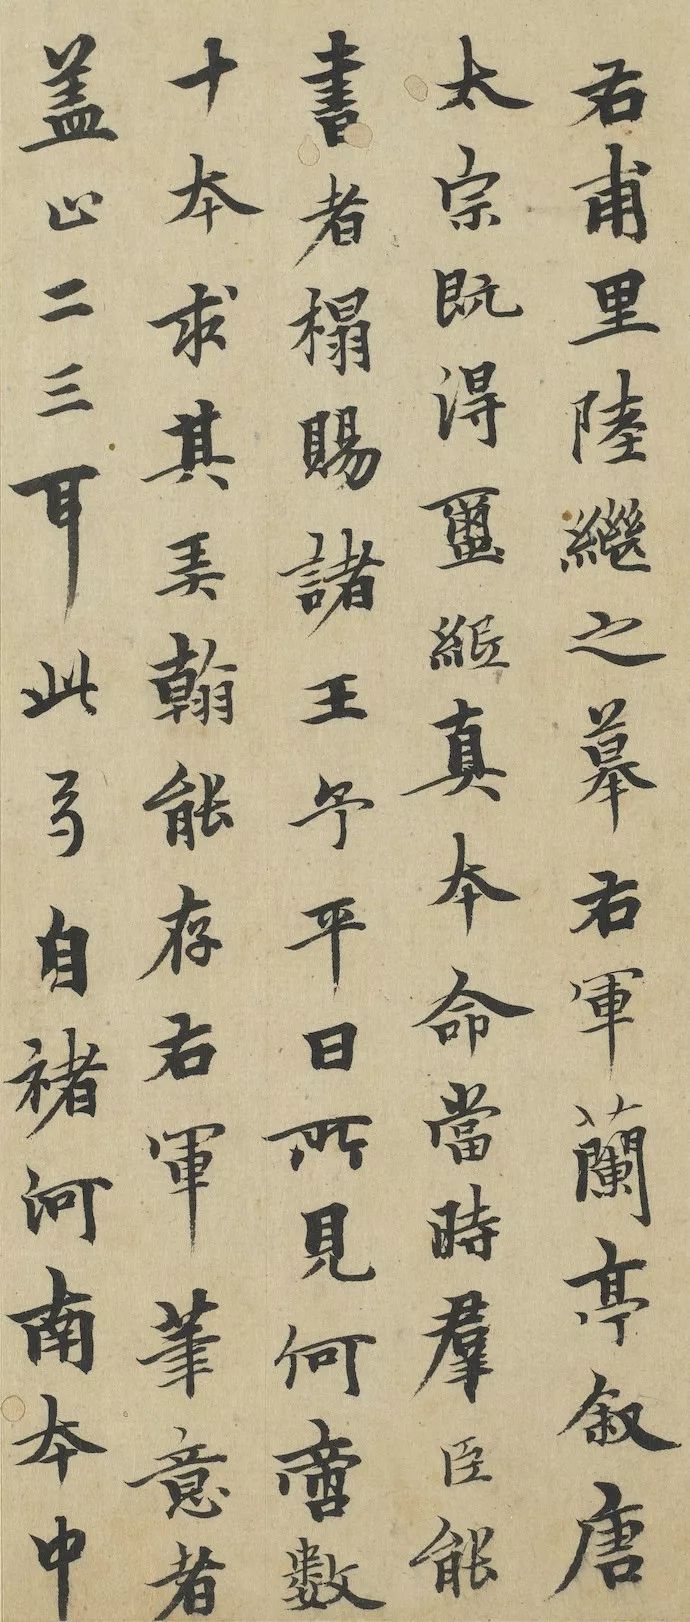 右甫里陸繼之摹右軍蘭亭叙唐
太宗既得璽紙真本命當時羣臣能
書者榻賜諸王予平日所見何啻數
十本求其弄翰能存右軍筆意者
盖止二三耳此乃自褚河南本中